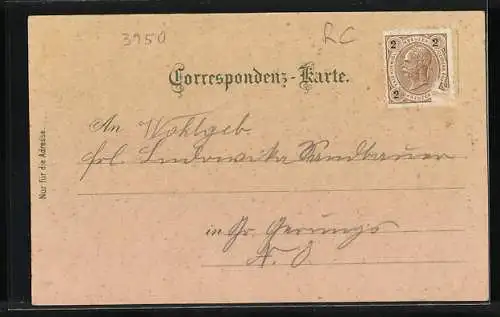 3950
RC
2 2
2 2
Correspondenz-Karte.
An Wohlgeb
Frl. Ludowika Sandbauer
in Gr. Gerungs
N. Ö.
Nur für die Adresse.